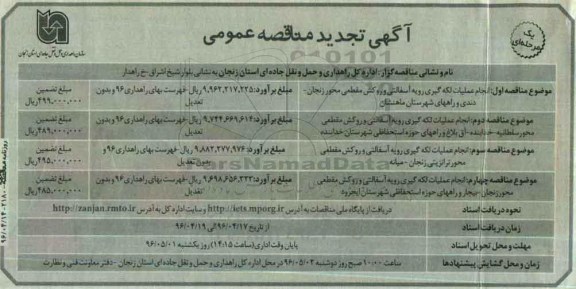 آگهی تجدید مناقصه عمومی
یک مرحله‌ای
نام و نشانی مناقصه گزار: اداره کل راهداری و حمل و نقل جاده ای استان زنجان به نشانی بلوار شیخ اشراق - خ راهدار
موضوع مناقصه اول: انجام عملیات لکه گیری رویه آسفالتی و روکش مقطعی محور زنجان - دندی و راههای شهرستان ماهنشان
مبلغ برآورد: ۹,۹۶۲,۲۱۷,۲۲۵ ریال فهرست بهای راهداری ۹۶ و بدون تعدیل
مبلغ تضمین ۴۹۹,۰۰۰,۰۰۰ ریال
موضوع مناقصه دوم: انجام عملیات لکه گیری رویه آسفالتی و روکش مقطعی محور سلطانیه - خدابنده - آق بلاغ و راههای حوزه استحفاظی شهرستان خدابنده
مبلغ برآورد: ۹,۷۴۴,۶۶۹,۶۱۴ ریال - فهرست بهای راهداری ۹۶ و بدون تعدیل
مبلغ تضمین ۴۸۹,۰۰۰,۰۰۰ ریال
موضوع مناقصه سوم: انجام عملیات لکه گیری رویه آسفالتی و روکش مقطعی محور ترانزیتی زنجان - میانه
مبلغ برآورد: ۹,۸۸۲,۲۷۷,۹۷۶ ریال فهرست بهای راهداری ۹۶ و بدون تعدیل
مبلغ تضمین ۴۹۵,۰۰۰,۰۰۰ ریال
موضوع مناقصه چهارم: انجام عملیات لکه گیری رویه آسفالتی و روکش مقطعی محور زنجان - بیجار و راههای حوزه استحفاظی شهرستان ایجرود
مبلغ برآورد: ۹,۶۹۸,۶۵۶,۳۳۳ ریال - فهرست بهای راهداری ۹۶ و بدون تعدیل
مبلغ تضمین ۴۸۵,۰۰۰,۰۰۰ ریال
نحوه دریافت اسناد
دریافت از پایگاه ملی مناقصات به آدرس http://iets.mporg.ir وسایت اداره کل به آدرس http://zanjan.rmto.ir
زمان دریافت اسناد
از تاریخ ۹۶/۰۴/۱۷ لغایت ۹۶/۰۴/۱۹
مهلت و محل تحویل اسناد
پایان وقت اداری (ساعت ۱۴:۱۵) روز یکشنبه ۹۶/۰۵/۰۱
زمان و محل گشایش پیشنهادها
ساعت ۱۰:۰۰ صبح روز دوشنبه ۹۶/۰۵/۰۲ در محل اداره کل راهداری و حمل و نقل جاده ای استان زنجان - دفتر معاونت فنی و نظارت